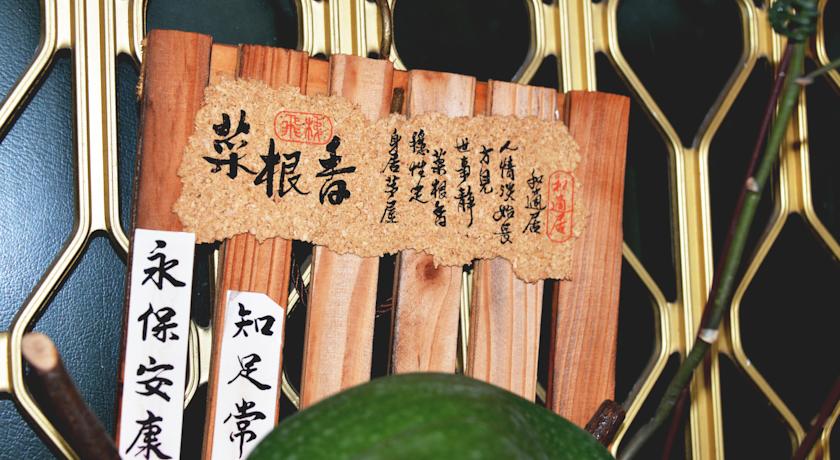 菜根香
身居茅屋
穩性定
菜根香
世事靜
方見
人情淡始長
永保安康
知足常